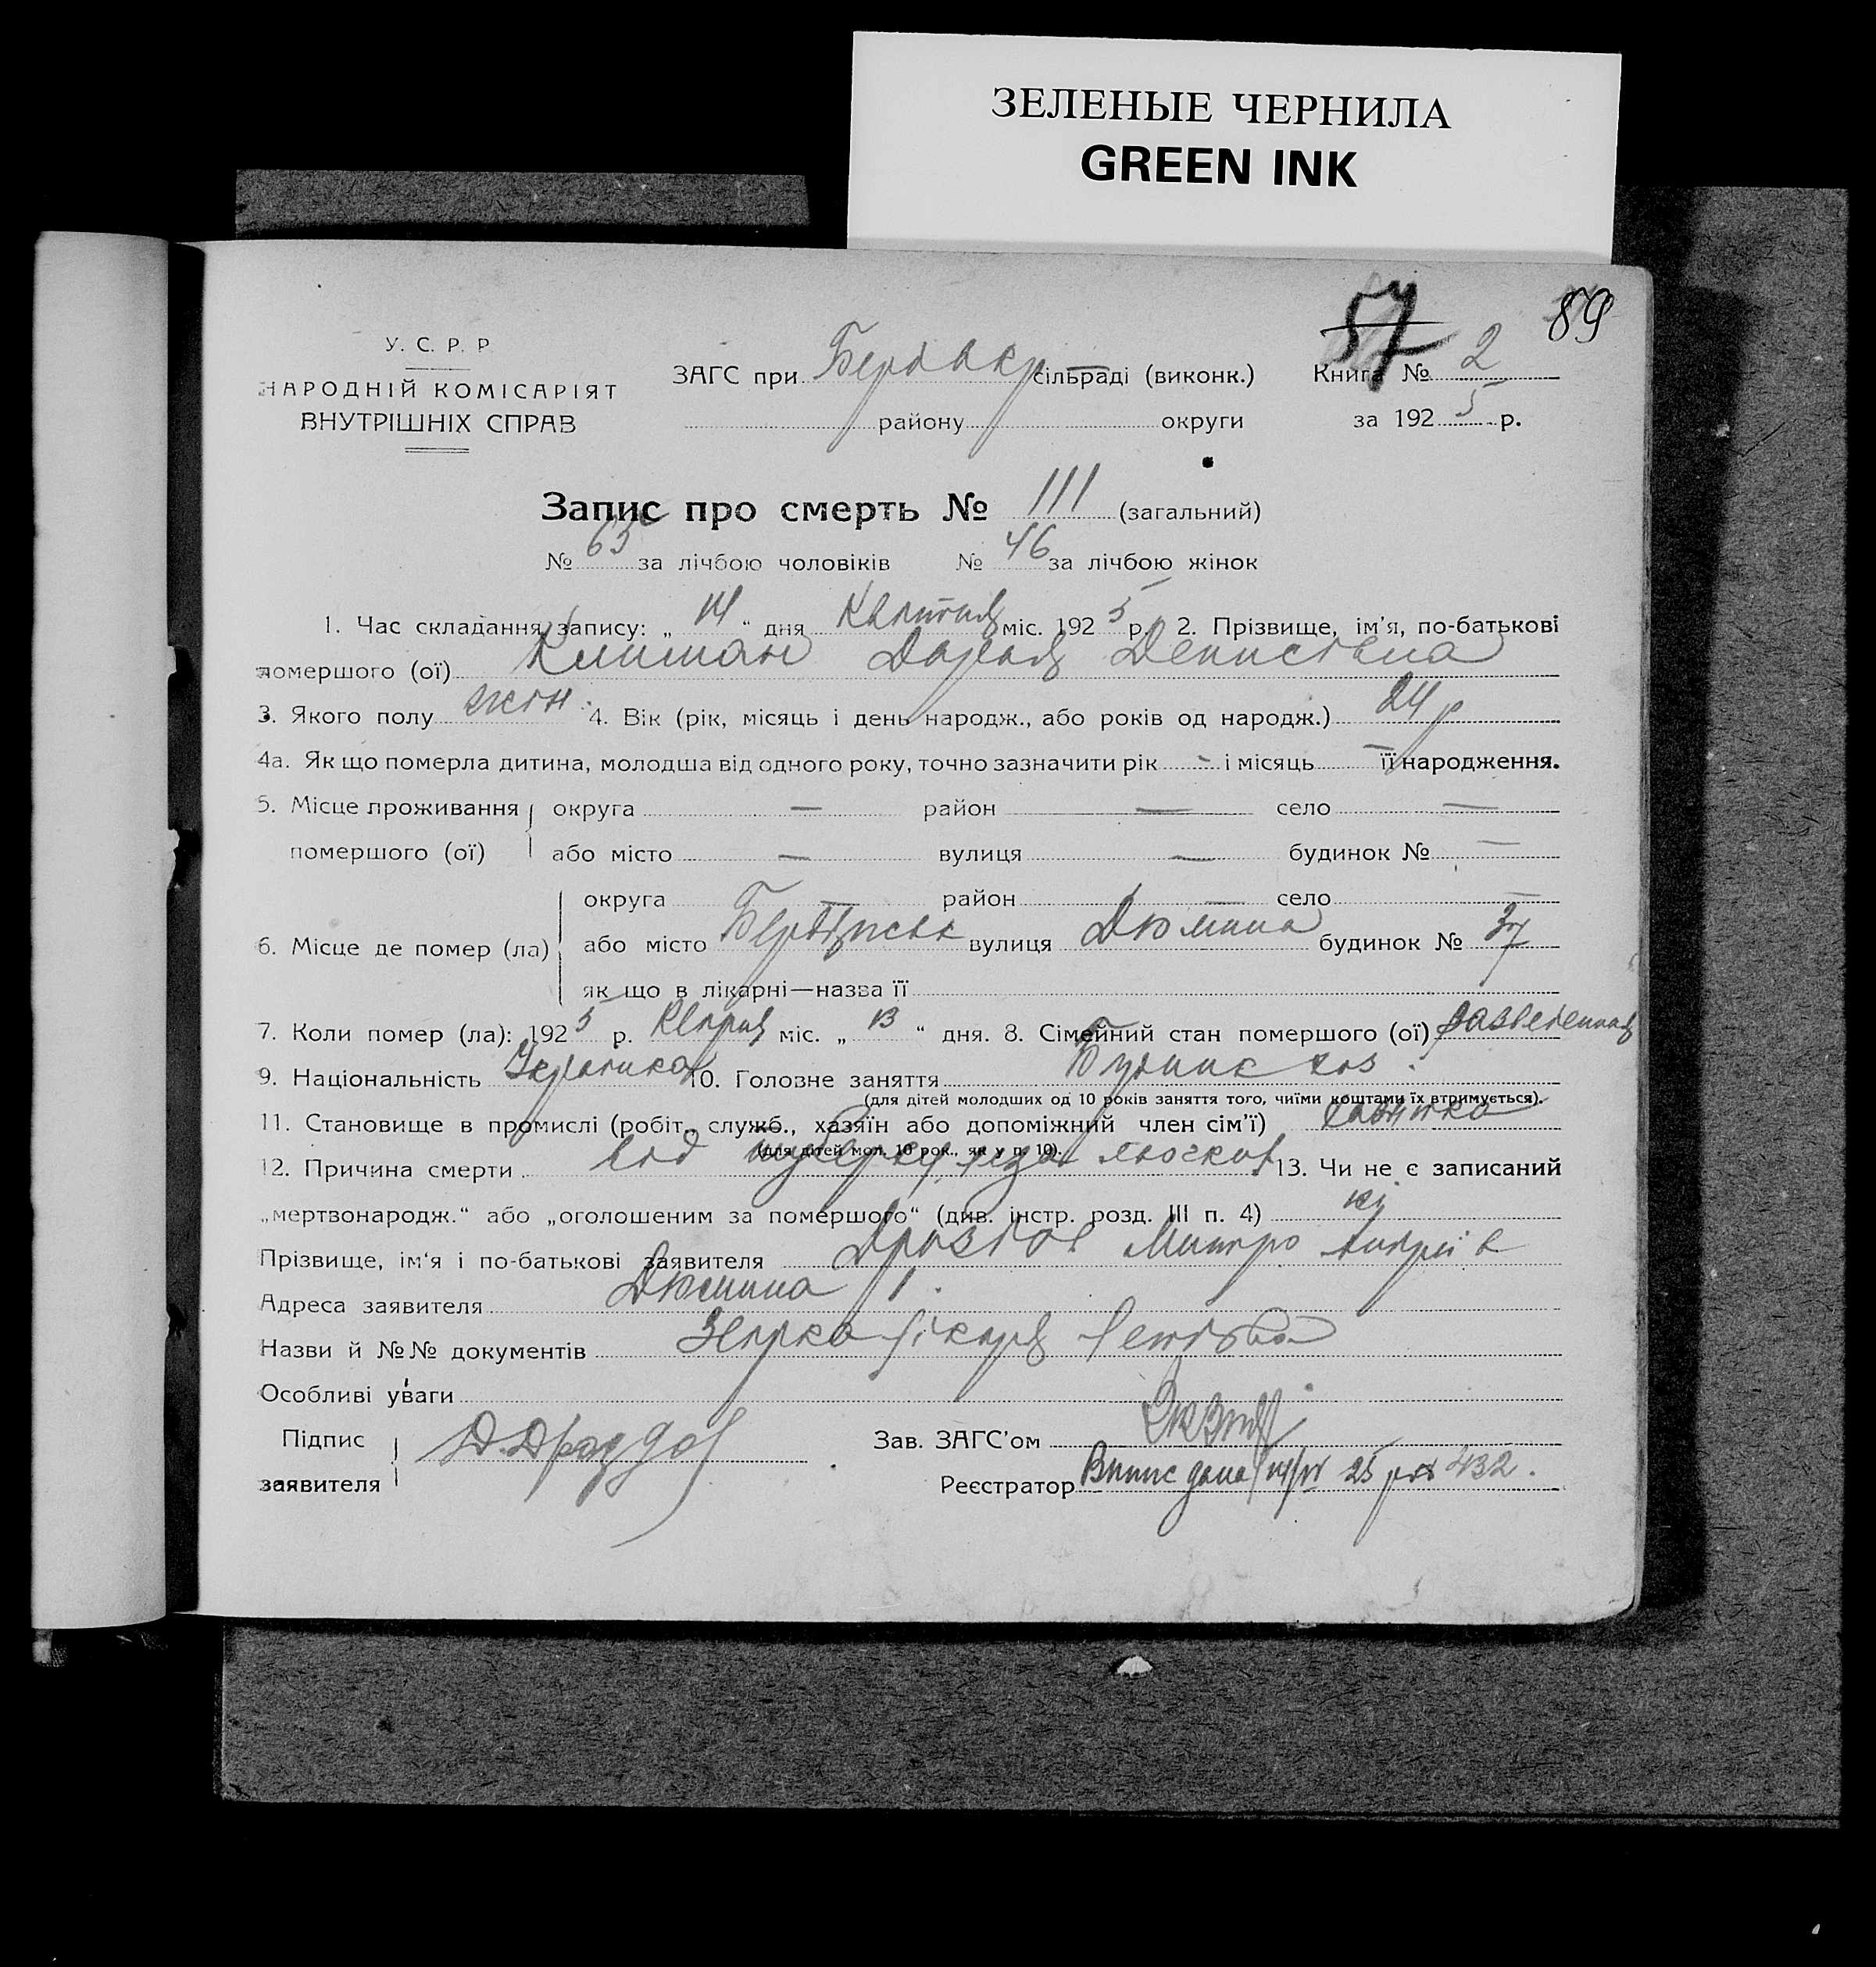 ЗЕЛЕНЫЕ ЧЕРНИЛА
GREEN INK
57 89
У. С. Р. Р.
НАРОДНІЙ КОМІСАРІЯТ
ВНУТРІШНІХ СПРАВ
ЗАГС при сільраді (виконк.) Книга № 2
району округи за 1925 р.
Запис про смерть № 111 (загальний)
№ 65 за лічбою чоловіків № 46 за лічбою жінок
1. Час складання запису: „14“ дня Квітня міс. 1925 р. 2. Прізвище, ім'я, по-батькові
помершого (ої) Денисівна
3. Якого полу жін. 4. Вік (рік, місяць і день народж., або років од народж.) 24 р
4а. Як що померла дитина, молодша від одного року, точно зазначити рік - і місяць — її народження.
5. Місце проживання округа — район — село —
помершого (ої) або місто — вулиця — будинок № —
округа — район — село —
6. Місце де помер (ла) або місто вулиця Дюмина будинок № 37
як що в лікарні—назва її
7. Коли помер (ла): 1925 р. міс. „13“ дня. 8. Сімейний стан помершого (ої) разведенная
9. Національність Українка 10. Головне заняття
(для дітей молодших од 10 років заняття того, чиїми коштами їх втримується).
11. Становище в промислі (робіт., служб., хазяїн або допоміжний член сім'ї)
(для дітей мол. 10 рок., як у п. 10).
12. Причина смерти від туберкульоза 13. Чи не є записаний
„мертвонародж.“ або „оголошеним за помершого“ (див. інстр. розд. III п. 4) ні
Прізвище, ім'я і по-батькові заявителя Дроздов Митро Андріїв
Адреса заявителя Дюмина
Назви й №№ документів лікаря
Особливі уваги
Підпис Д. Дроздов Зав. ЗАГС'ом
заявителя Реєстратор Випис дана 14/IV 25 р 432.